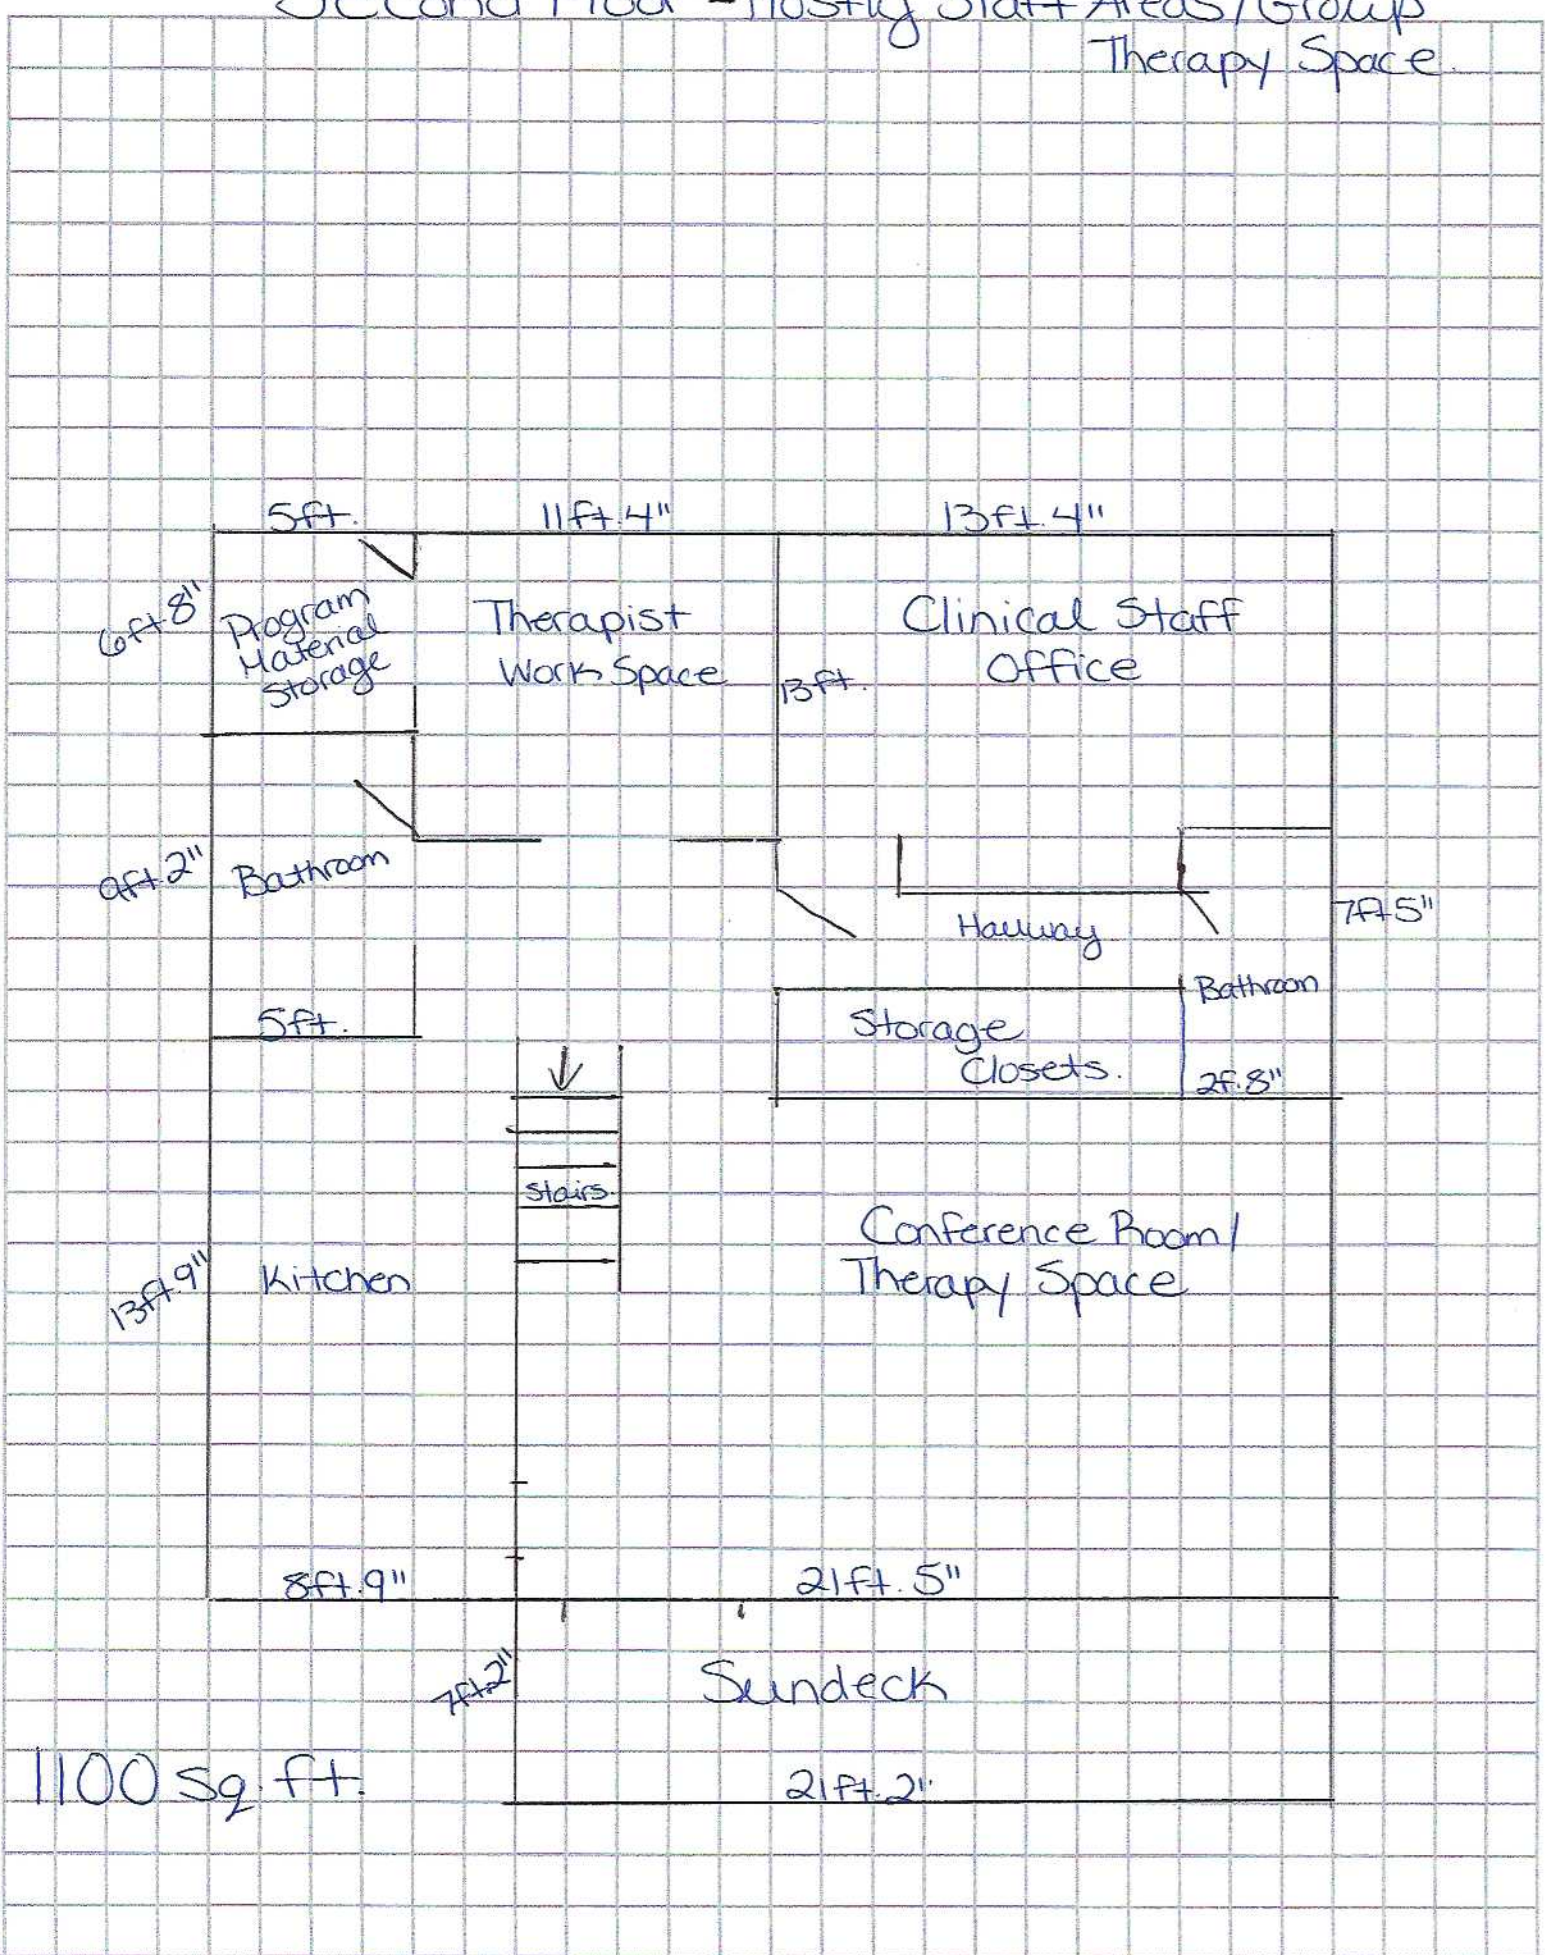 Second Floor - Mostly Staff Areas/Group
Therapy Space.
5ft.
11ft.4"
13ft.4"
6ft8"
Program
Material
Storage
Therapist
Work Space
13ft.
Clinical Staff
Office
9ft.2"
Bathroom
Hallway
7ft5"
5ft.
Storage
Closets.
Bathroom
2f.8"
Stairs.
13ft.9"
Kitchen
Conference Room/
Therapy Space
8ft.9"
21ft.5"
7ft2"
Sundeck
1100 sq.ft.
21ft.2"